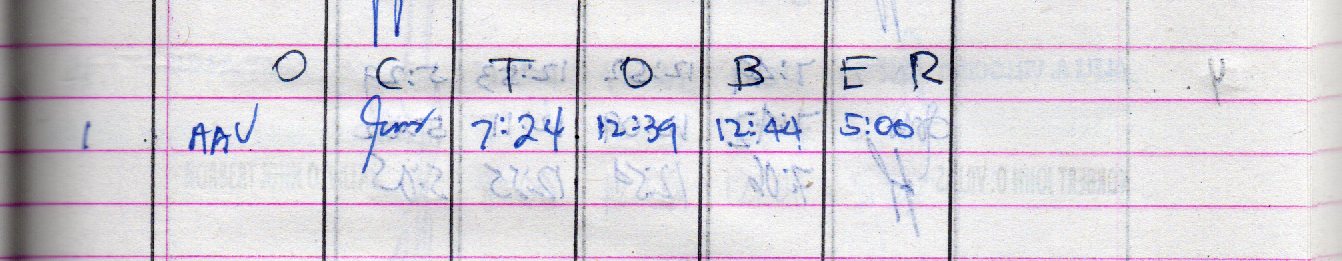 O C T O B E R
1 AAV 7:24 12:39 12:44 5:00